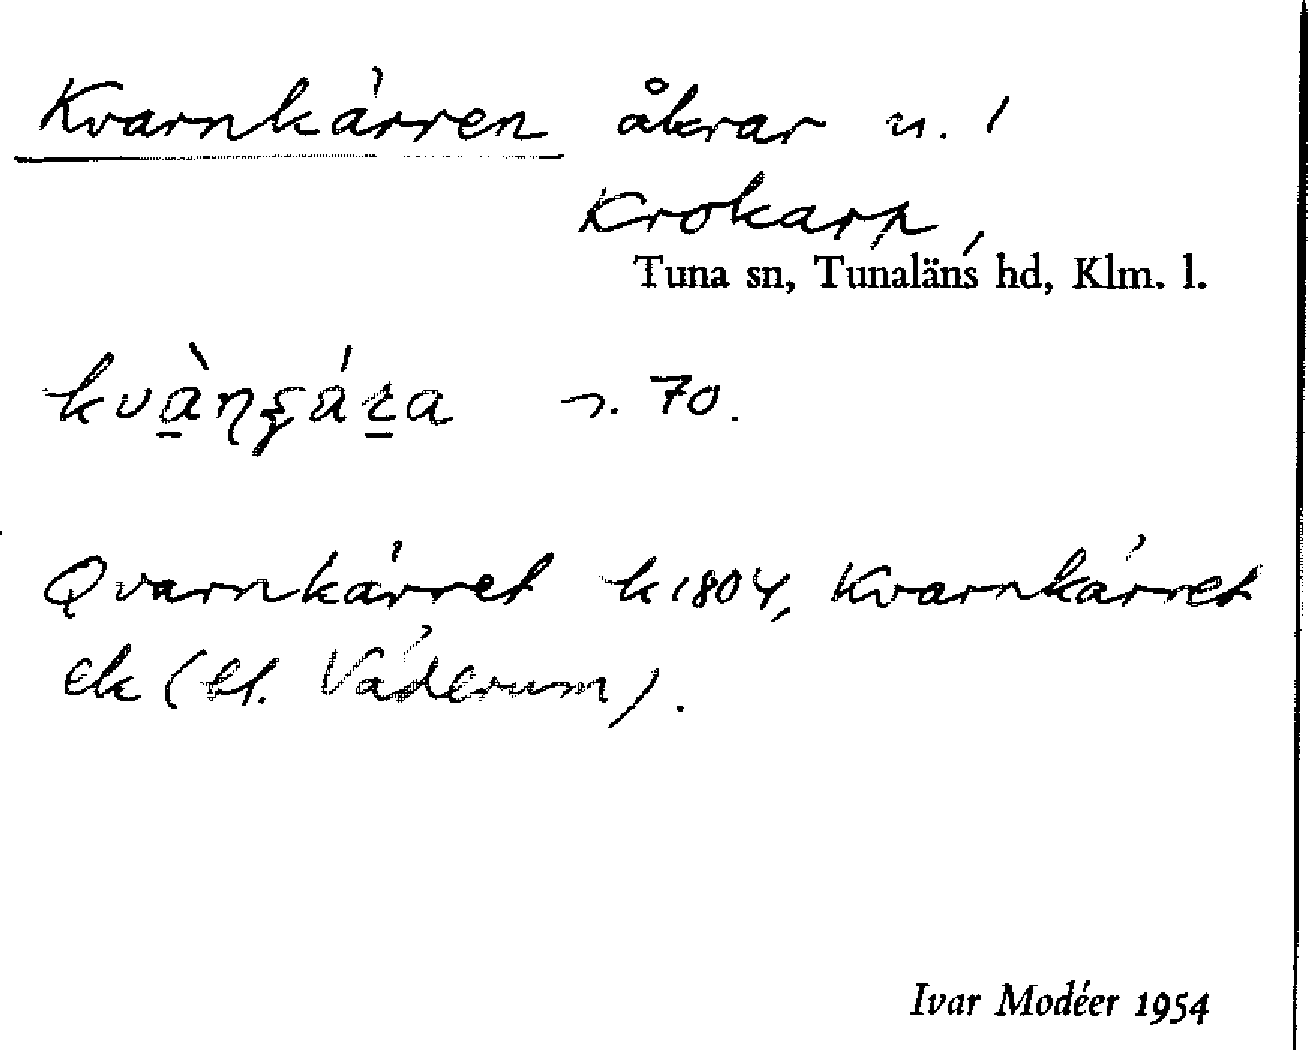 Kvarnkärren åkrar u. i
Krokarp,
Tuna sn, Tunaläns hd, Klm. l.
s. 70.
Qvarnkärret k 1804, Kvarnkärret
ek (bl. Väderum).
Ivar Modéer 1954